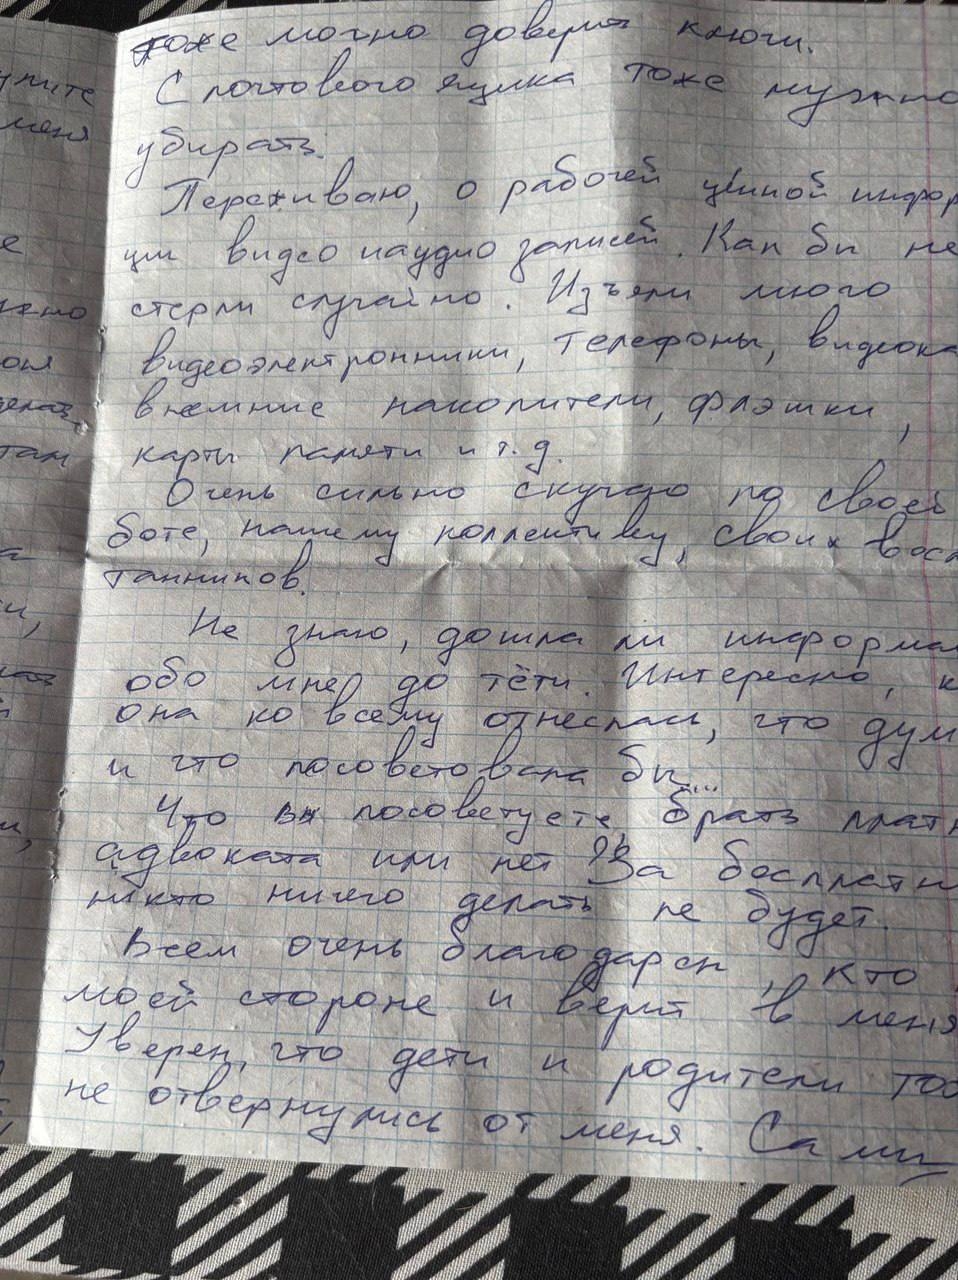 тоже можно доверить ключи.
С почтового ящика тоже нужно
убирать.
Переживаю, о рабочей ценной инфор
ции видео и аудио записей. Как бы не
стерли случайно. Изъяли много
видеоэлектроники, телефоны, видеока
внемние накопители, флэшки,
карты памяти и т.д.
Очень сильно скучаю по своей
боте, нашему коллективу, своих восп
танников.
Не знаю, дошла ли информа
обо мне до тёти. Интересно, к
она ко всему отнеслась, что дум
и что посоветовала бы...
Что вы посоветуете, брать платн
адвоката или нет?? За бесплатн
никто ничего делать не будет.
Всем очень благодарен, кто
моей стороне и верит в меня
Уверен, что дети и родители тоо
не отвернулись от меня. Сами
упите
меня
е
он
делать
там
а
и,